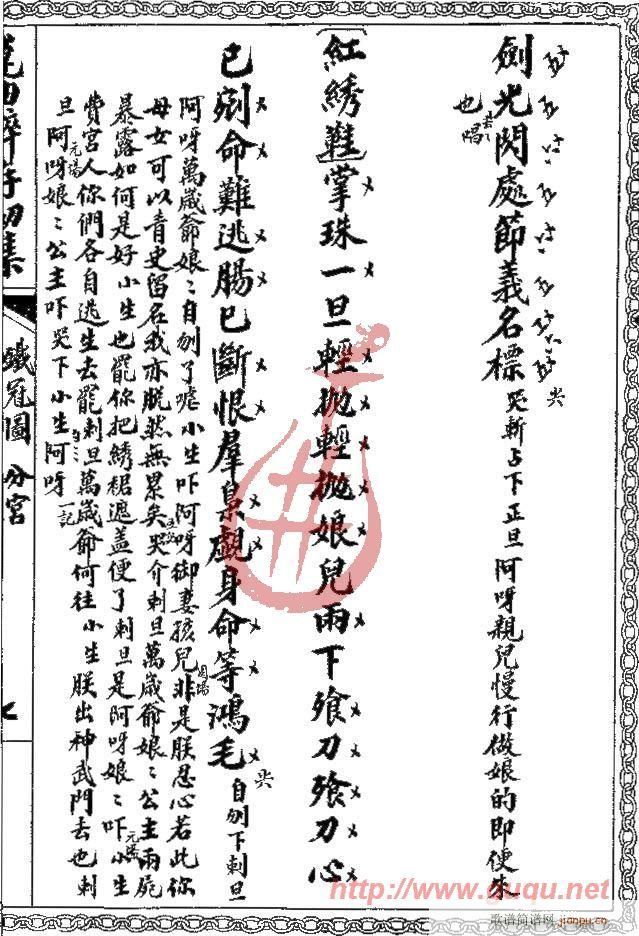 劍光閃處節義名標 哭斬占下正旦阿呀親兒慢行做娘的即便來
也唱
[紅綉鞋]掌珠一旦輕拋輕拋娘兒兩下飱刀飱刀心
已剜命難逃腸已斷恨羣梟覷身命等鴻毛 自刎下刺旦
阿呀萬歲爺娘〻自刎了嚄小生吓阿呀御妻孩兒非是朕忍心若此你
母女可以青史留名我亦脫然無累矣哭介刺旦萬歲爺娘〻公主兩屍
暴露如何是好小生也罷你把綉裙遮盖便了刺旦是阿呀娘〻吓小生
費宮人你們各自逃生去罷刺旦萬歲爺何往小生朕出神武門去也刺
旦阿呀娘〻公主吓哭下小生阿呀
鐵冠圖 分宮
http://www.guqu.net
歌谱简谱网
jianpu.cn